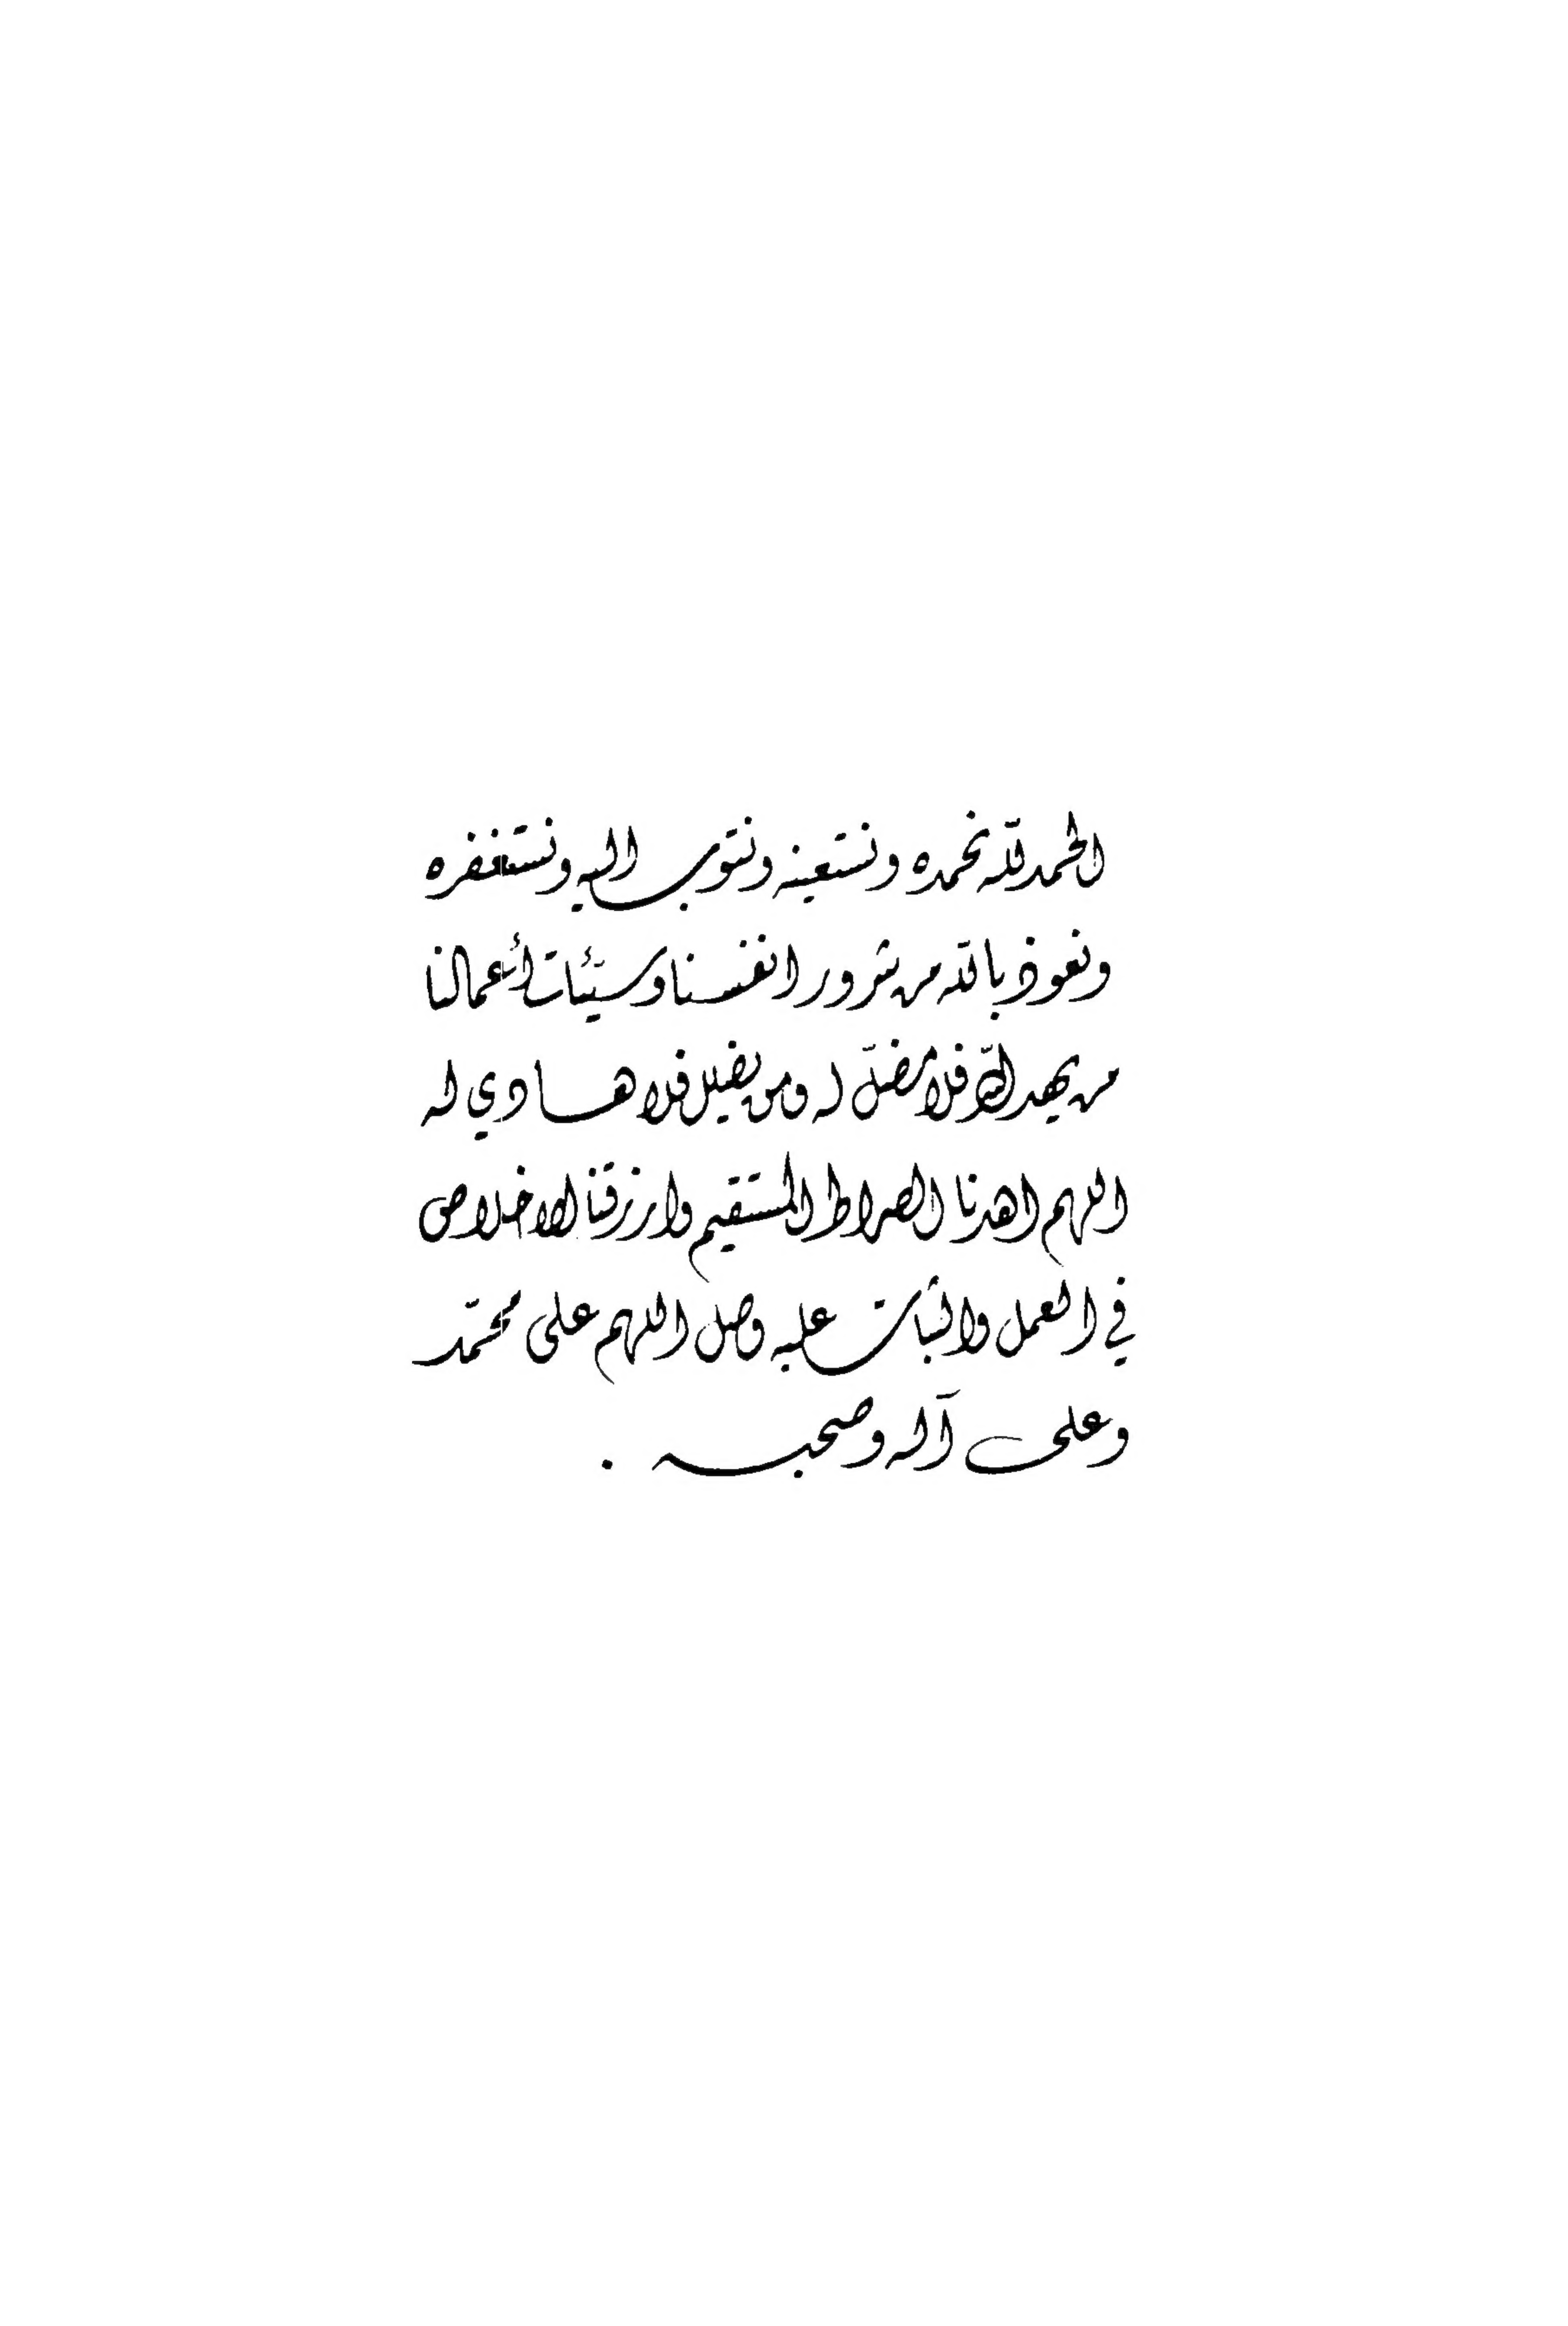 الحمد لله نحمده ونستعينه ونتوب اليه ونستغفره
ونعوذ بالله من شرور انفسنا وسيّئات أعمالنا
من يهد اللّه فلا مضلّ له ومن يضلل فلا هادي له
اللهم اهدنا الصراط المستقيم وارزقنا الاخلاص
في العمل والثبات عليه وصل اللهم على محمّد
وعلى آله وصحبه .